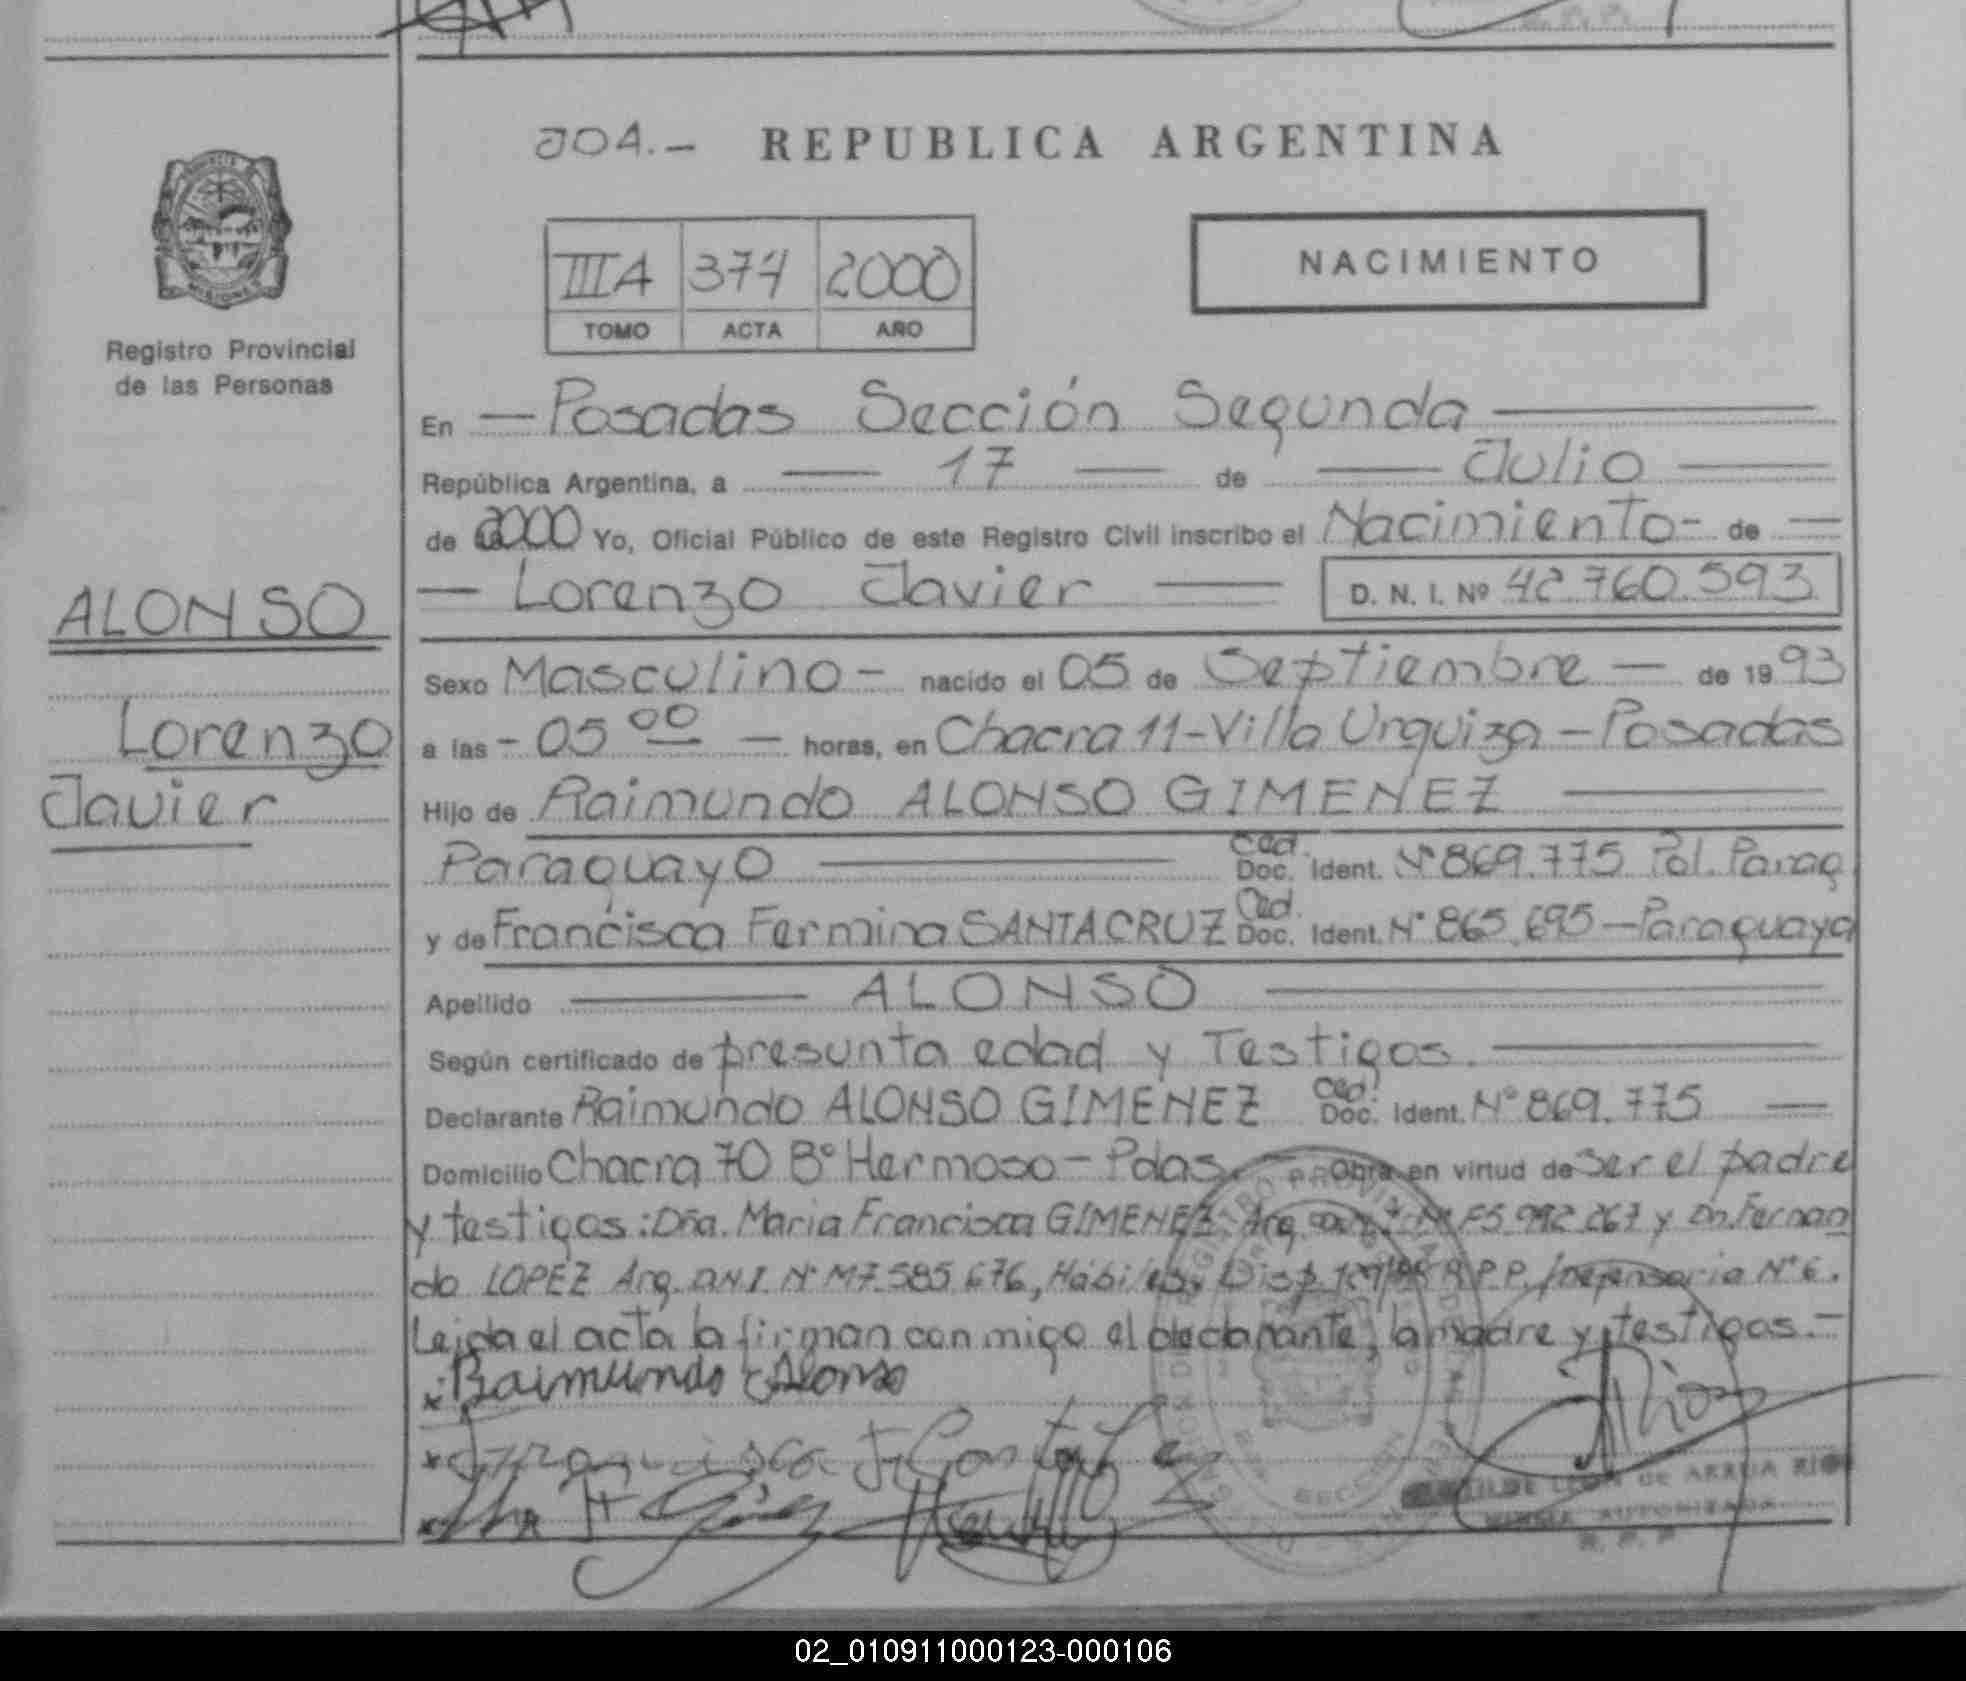 204.- REPUBLICA ARGENTINA
IIIA 374 2000
TOMO ACTA AÑO
NACIMIENTO
Registro Provincial
de las Personas
En Posadas Sección Segunda
República Argentina, a 17 de Julio
de 2000 Yo, Oficial Público de este Registro Civil inscribo el Nacimiento- de
Lorenzo Javier D. N. I. Nº 42.760.593
ALONSO
Lorenzo
Javier
Sexo Masculino- nacido el 05 de Septiembre de 1993
a las - 05 00 horas, en Chacra 11-Villa Urquiza-Posadas
Hijo de Raimundo ALONSO GIMENEZ
Paraguayo Ced. Doc. Ident. Nº 869.775 Pol. Parag
y de Francisca Fermina SANTACRUZ Ced. Doc. Ident. Nº 865.695-Paraguaya
Apellido ALONSO
Según certificado de presunta edad y Testigos.
Declarante Raimundo ALONSO GIMENEZ Ced. Doc. Ident. Nº 869.775
Domicilio Chacra 70 Bº Hermoso-Pdas. Obra en virtud de ser el padre
y testigos: Dña. Maria Francisca GIMENEZ Arg. F5.992.267 y Dn. Fernan
do LOPEZ Arg. D.N.I. Nº M7.585.676, Hábiles. Disp. R.P.P./Defensoria Nº 6.
Leida el acta la firman con migo el declarante, la madre y testigos.-
Raimundo Alonso
DE ARRUA RIOS
FIRMA AUTORIZADA
R. P. P.
02_010911000123-000106